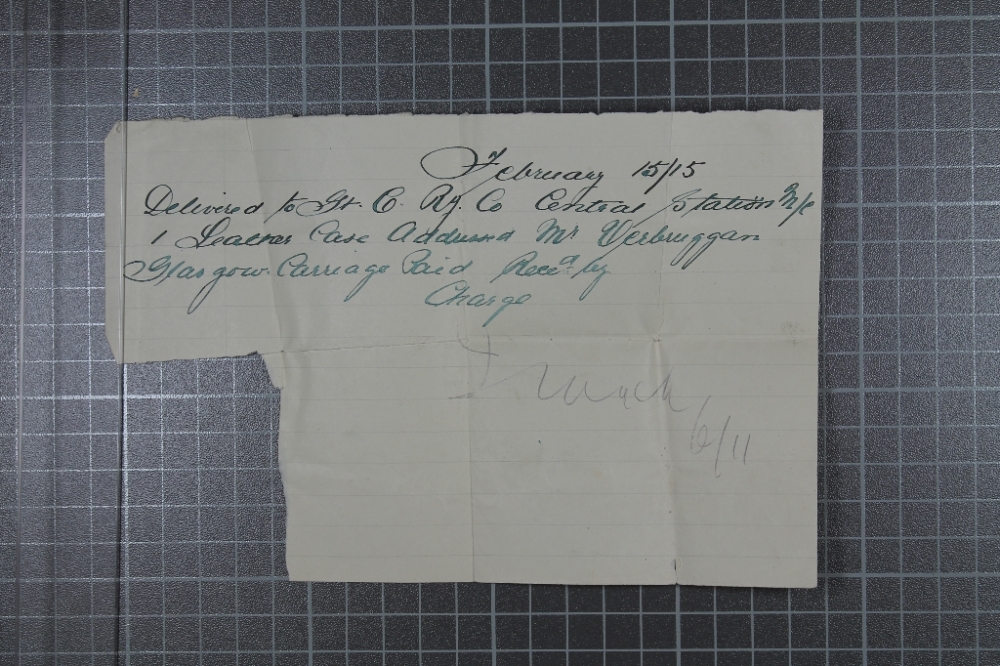 February 15/15
Delivered to Gt. C. Ry. Co Central Station N/c
1 Leather Case Addressed Mr Verbruggan
Glasgow Carriage Paid Recd by
Charge
6/11